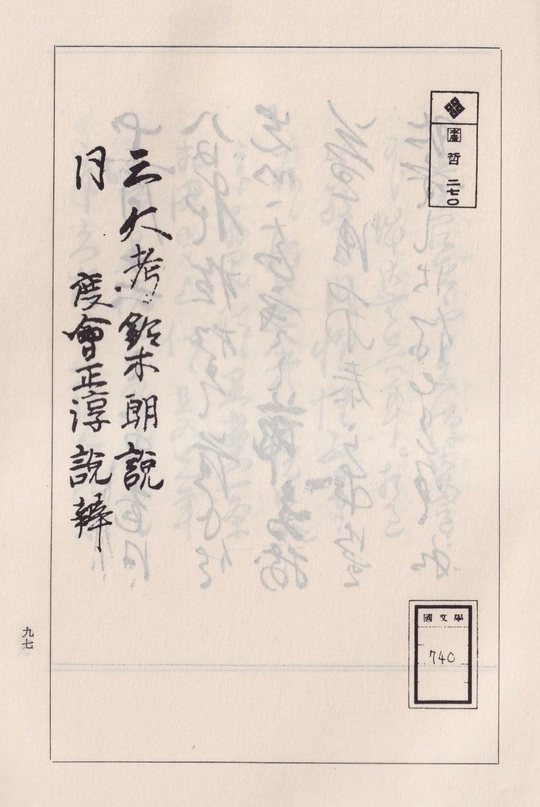 哲 二七〇
三大考 鈴木朗說
同 度會正淳說辨
國文學
740
九七